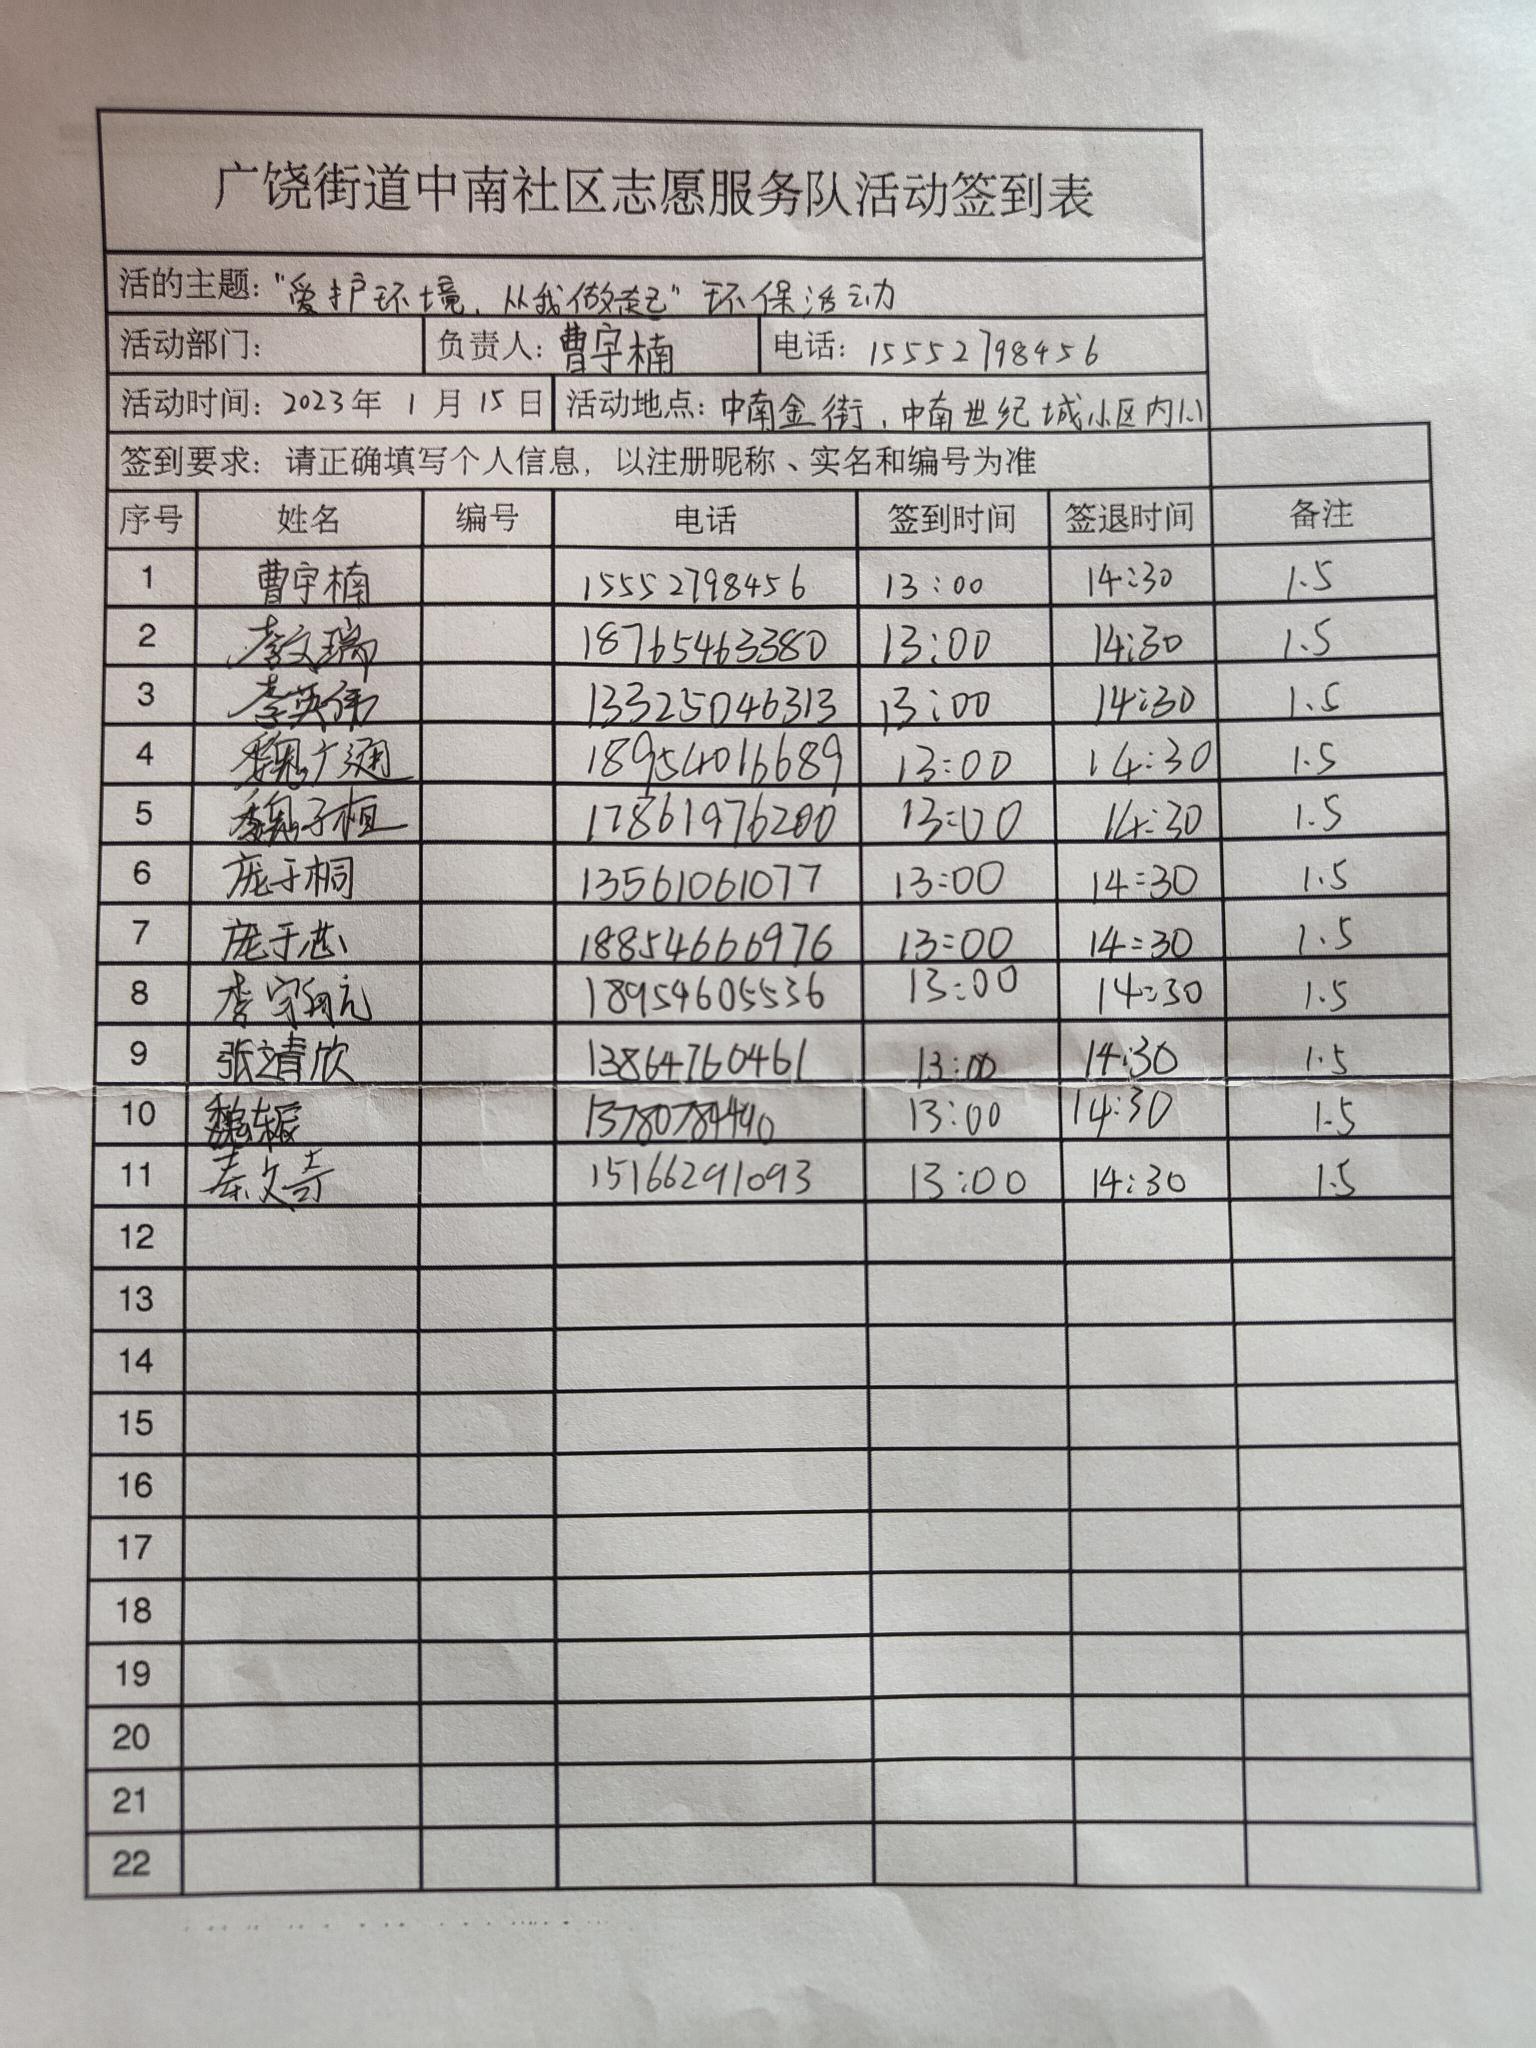 广饶街道中南社区志愿服务队活动签到表
活的主题："爱护环境，从我做起"环保活动
活动部门： 负责人：曹宇楠 电话：15552798456
活动时间：2023年 1 月 15 日 活动地点：中南金街，中南世纪城小区内
签到要求：请正确填写个人信息，以注册昵称、实名和编号为准
序号 姓名 编号 电话 签到时间 签退时间 备注
1 曹宇楠 15552798456 13:00 14:30 1.5
2 李文瑞 18765463380 13:00 14:30 1.5
3 李英伟 13325046313 13:00 14:30 1.5
4 魏广通 18954016689 13:00 14:30 1.5
5 魏子桓 17861976200 13:00 14:30 1.5
6 庞于桐 13561061077 13:00 14:30 1.5
7 庞于芯 18854666976 13:00 14:30 1.5
8 李 18954605536 13:00 14:30 1.5
9 张靖欣 13864760461 13:00 14:30 1.5
10 魏振 13780784440 13:00 14:30 1.5
11 秦文奇 15166291093 13:00 14:30 1.5
12
13
14
15
16
17
18
19
20
21
22